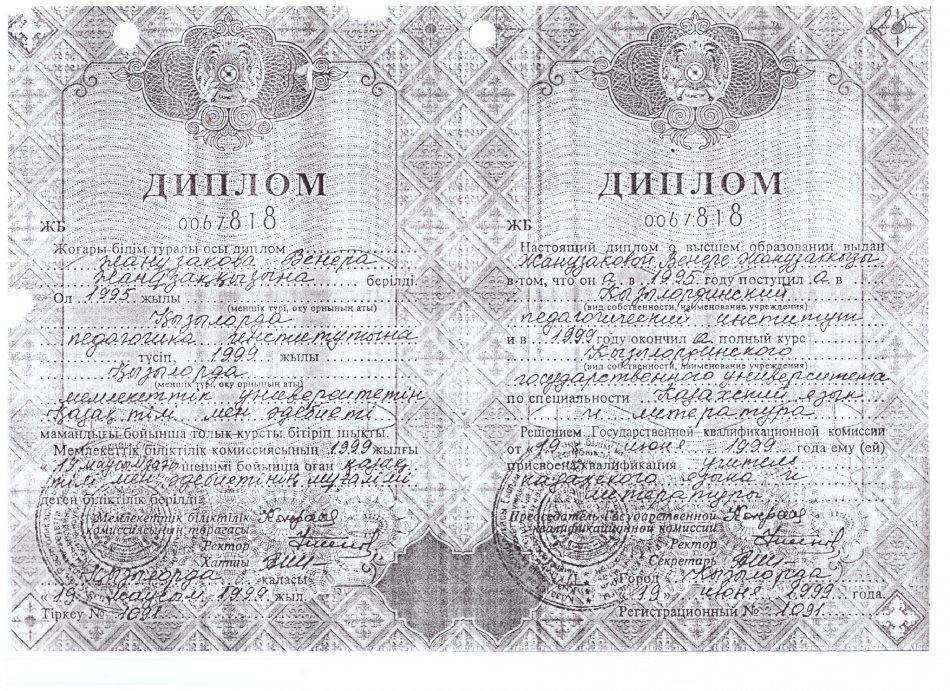 25
ДИПЛОМ
ЖБ 0067818
Жоғары білім туралы осы диплом
Жанузакова Венера
Жанұзаққызына берілді.
Ол 1995 жылы
(меншік түрі, оқу орнының аты)
Қызылорда
педагогика институтына
түсіп, 1999 жылы
Қызылорда
(меншік түрі, оқу орнының аты)
мемлекеттік университетін
Қазақ тілі мен әдебиеті
мамандығы бойынша толық курсты бітіріп шықты.
Мемлекеттік біліктілік комиссиясының 1999 жылғы
« 19 маусымдағы шешімі бойынша оған қазақ
тілі мен әдебиетінің мұғалімі
деген біліктілік берілді.
Мемлекеттік біліктілік
комиссиясының төрағасы
Ректор
Хатшы
Қызылорда қаласы
« 19 » маусым 1999 жыл.
Тіркеу № 1091
ДИПЛОМ
ЖБ 0067818
Настоящий диплом о высшем образовании выдан
Жанузаковой Венере Жанузаккызы
в том, что он а в 1995 году поступил а в
Кызылординский
(вид собственности, наименование учреждения)
педагогический институт
и в 1999 году окончил а полный курс
Кызылординского
(вид собственности, наименование учреждения)
государственного университета
по специальности Казахский язык
и литература
Решением Государственной квалификационной комиссии
от «19» июня 1999 года ему (ей)
присвоена квалификация учитель
казахского языка и
литературы
Председатель Государственной
квалификационной комиссии
Ректор
Секретарь
Город Кызылорда
«19» июня 1999 года.
Регистрационный № 1091